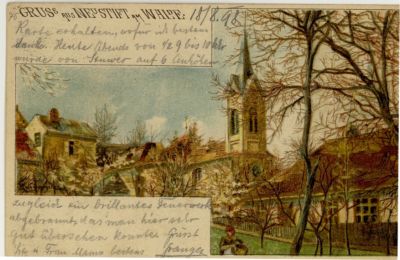 GRUSS aus NEUSTIFT am WALDE. 18/8.98
Karte erhalten, wofür ich bestens
danke. Heute Abends von ½ 9 bis 10 Uhr
wurde von Stuwer auf 6 Anhöhen
zugleich ein brillantes Feuerwerk
abgebrannt, das man hier sehr
gut übersehen konnte. Grüsst
Sie u. Frau Mama bestens